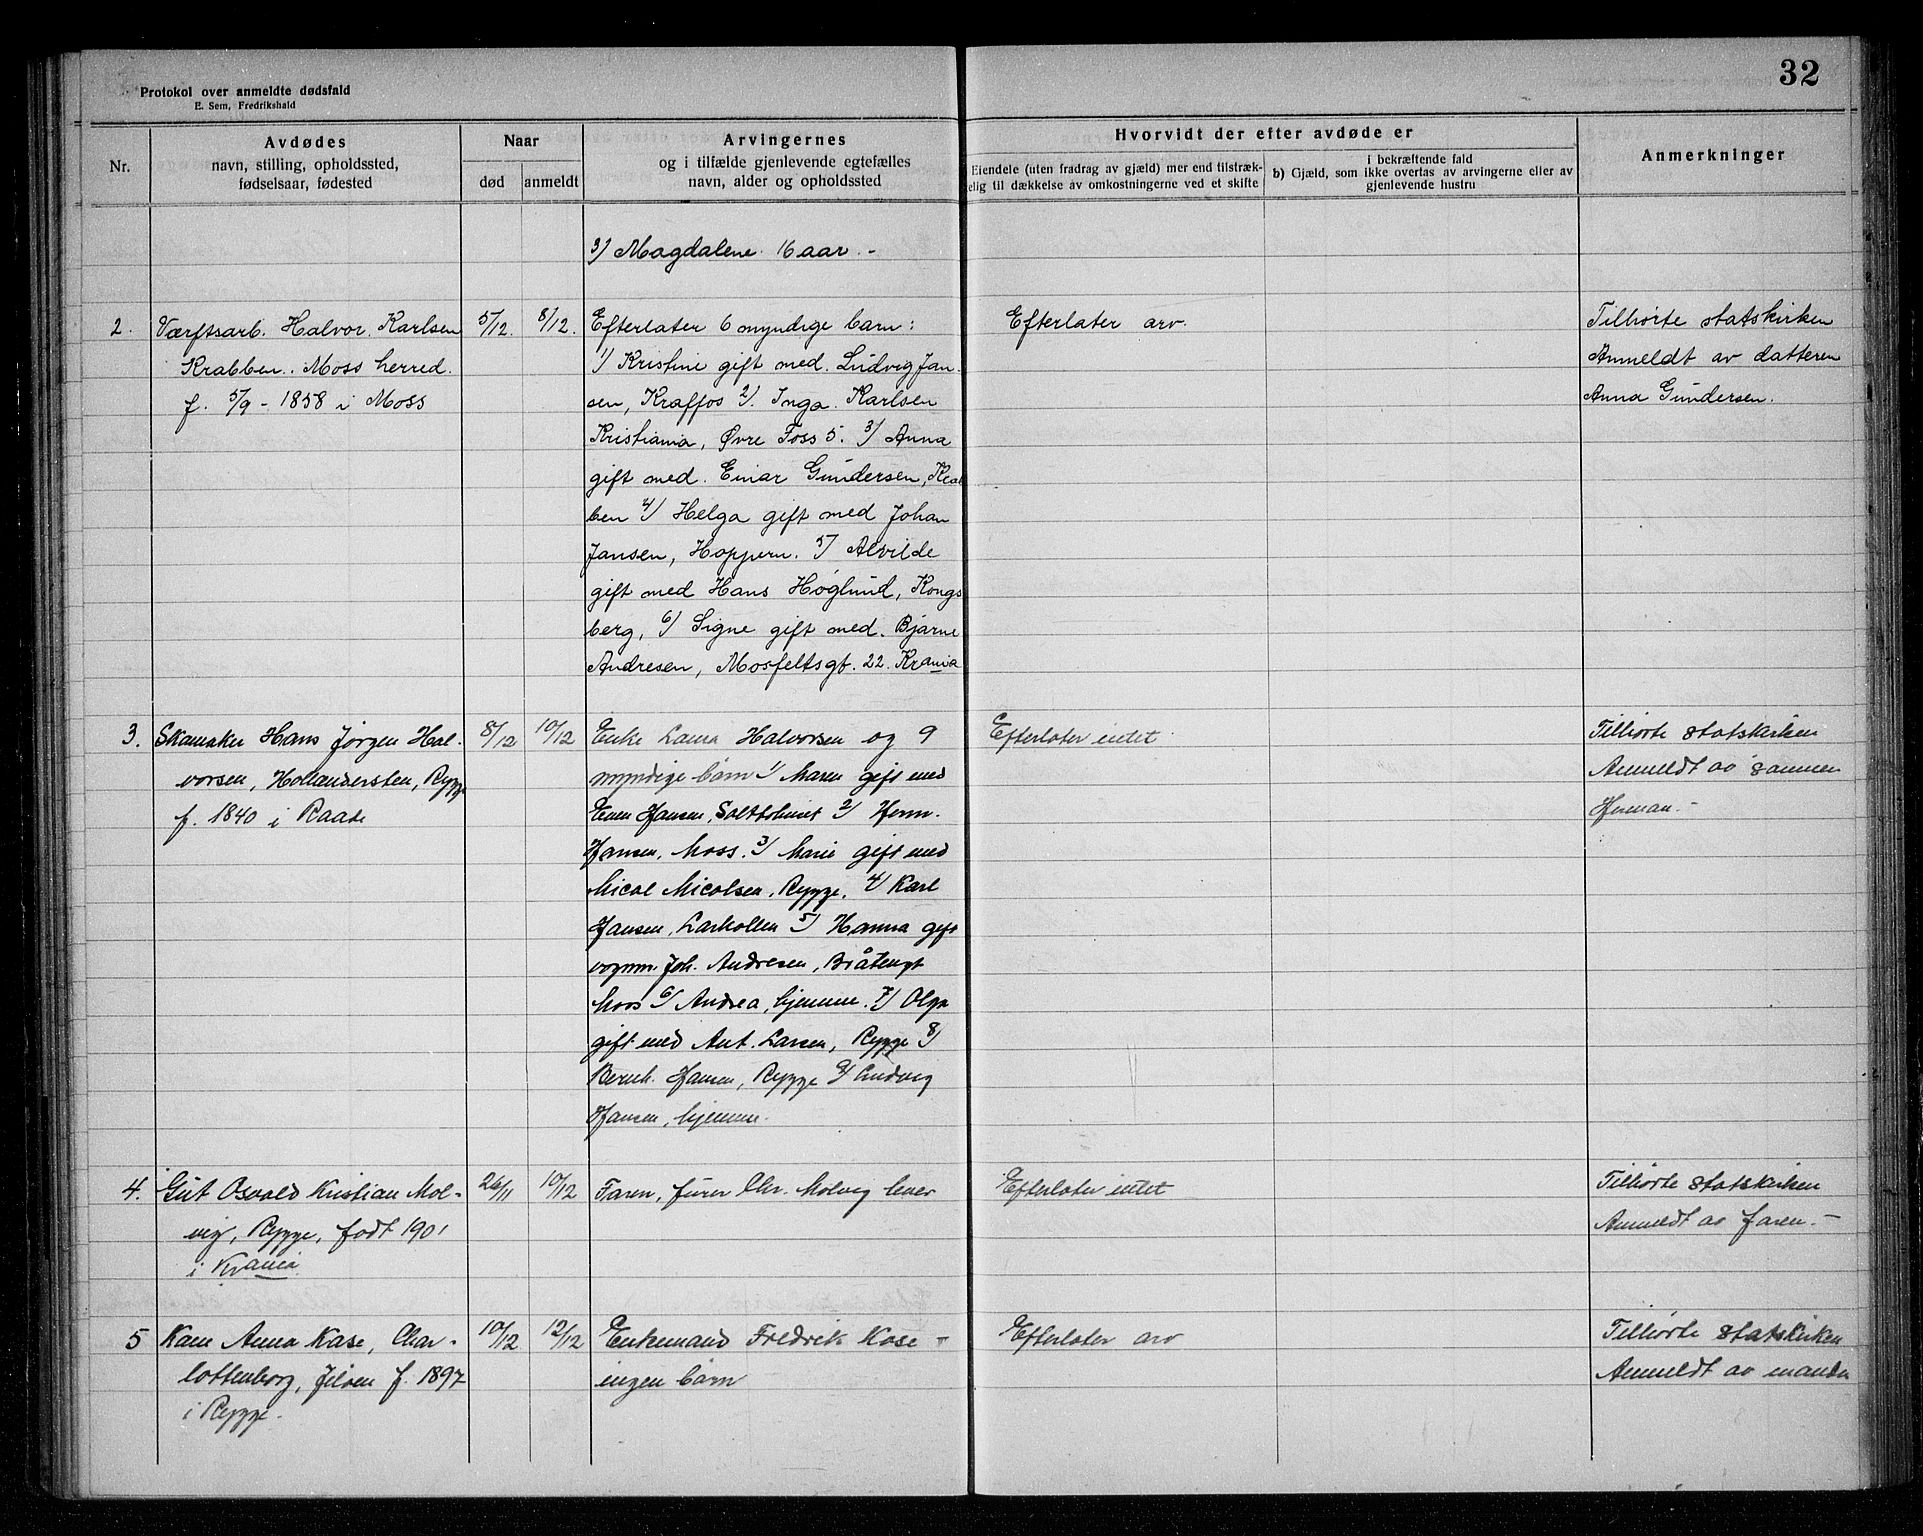 32
Protokol over anmeldte dødsfald
E. Sem, Fredrikshald
Nr.
Avdødes
navn, stilling, opholdssted,
fødselsaar, fødested
Naar
død
anmeldt
Arvingernes
og i tilfælde gjenlevende egtefælles
navn, alder og opholdssted
Hvorvidt der efter avdøde er
Eiendele (uten fradrag av gjæld) mer end tilstræk-
elig til dækkelse av omkostningerne ved et skifte
i bekræftende fald
b) Gjæld, som ikke overtas av arvingerne eller av
gjenlevende hustru
Anmerkninger
3) Magdalene 16 aar. -
2.
Værftsarb. Halvor Karlsen
Krabben. Moss herred.
f. 5/9 - 1858 i Moss
5/12.
8/12.
Efterlater 6 myndige barn:
1) Kristine gift med. Ludvig Jan-
sen, Kraffos 2). Inga. Karlsen
Kristiania, Øvre Foss 5. 3) Anna
gift med. Einar Gundersen, Krab
ben 4) Helga gift med Johan
Jansen, Hoppern. 5) Alvilde
gift med Hans Høglund, Kongs
berg, 6) Signe gift med. Bjarne
Andresen, Mosfeltsgt. 22. Krania
Efterlater arv.
Tilhørte statskirken
Anmeldt av datteren
Anna Gundersen.
3.
Skomaker Hans Jørgen Hal-
vorsen, Hollendersten, Rygge
f. 1840 i Raade
8/12
10/12
Enke Laura Halvorsen og 9
myndige børn 1) Maren gift med
Even Hansen, 2) Herm.
Hansen, Moss. 3) Marie gift med
Nicol Nicolsen, Rygge, 4) Karl
Hansen, Larkollen 5) Hanna gift
vognm. Joh. Andresen, Bråtengt
Moss 6) Andrea, hjemme. 7) Olga
gift med Ant. Larsen, Rygge 8)
Bernh. Hansen, Rygge 9) Ludvig
Hansen, hjemme.
Efterlater intet
Tilhørte statskirken
Anmeldt av sønnen
Herman. -
4.
Gut Osvald Kristian Mol-
vig, Rygge, født 1901
i Krania
26/11
10/12
Faren, furer Chr. Molvig lever
Efterlater intet
Tilhørte statskirken
Anmeldt av faren. -
5
Kone Anna Kase, Char-
lottenborg, Jeløen f. 1897
i Rygge.
10/12
12/12
Enkemand Fredrik Kase -
ingen børn
Efterlater arv
Tilhørte statskirken
Anmeldt av manden